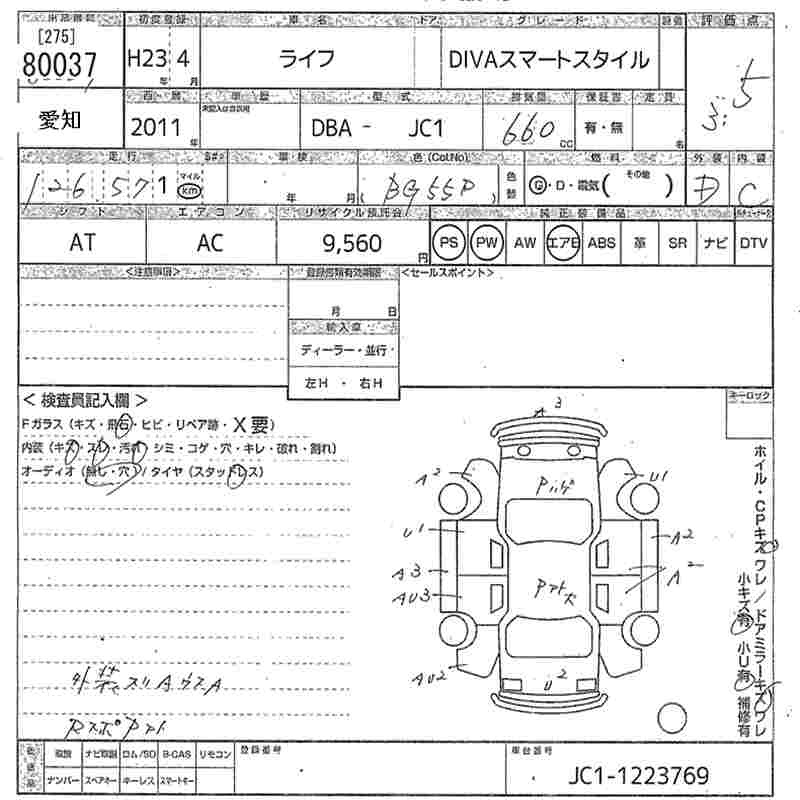 出品番号 初度登録 車名 ドア グレード 評価点
[275]
80037 H23年 4月 ライフ DIVAスマートスタイル 3.5
愛知
車歴 型式 排気量 保証書 定員
2011年 未記入は自家用 DBA - JC1 660 CC 有・無 名
走行 車検 色(Col.No) 燃料 外装 内装
126,571 マイル km 年 月 (BG55P) 色替 G・D・電気( その他 ) D C
シフト エアコン リサイクル預託金 純正装備品
AT AC 9,560円 PS PW AW エアB ABS 革 SR ナビ DTV
<注意事項> 登録書類有効期限 <セールスポイント>
月 日
輸入車
ディーラー・並行
左H ・ 右H
<検査員記入欄> キーロック
Fガラス(キズ・飛石・ヒビ・リペア跡・X要)
内装(キズ・スレ・汚れ・シミ・コゲ・穴・キレ・破れ・割れ)
オーディオ(無し・穴)/タイヤ(スタッドレス)
A3
A2 U1
U1 A2
A3 A2
AU3
AU2 U2
ホイル・CPキズワレ/ドアミラーキズワレ
小キズ有 小U有 補修有
外装スリAウスA
ナビ取説 ロム/SD B-CAS リモコン 登録番号 車台番号
ナンバー スペアキー キーレス スマートキー JC1-1223769